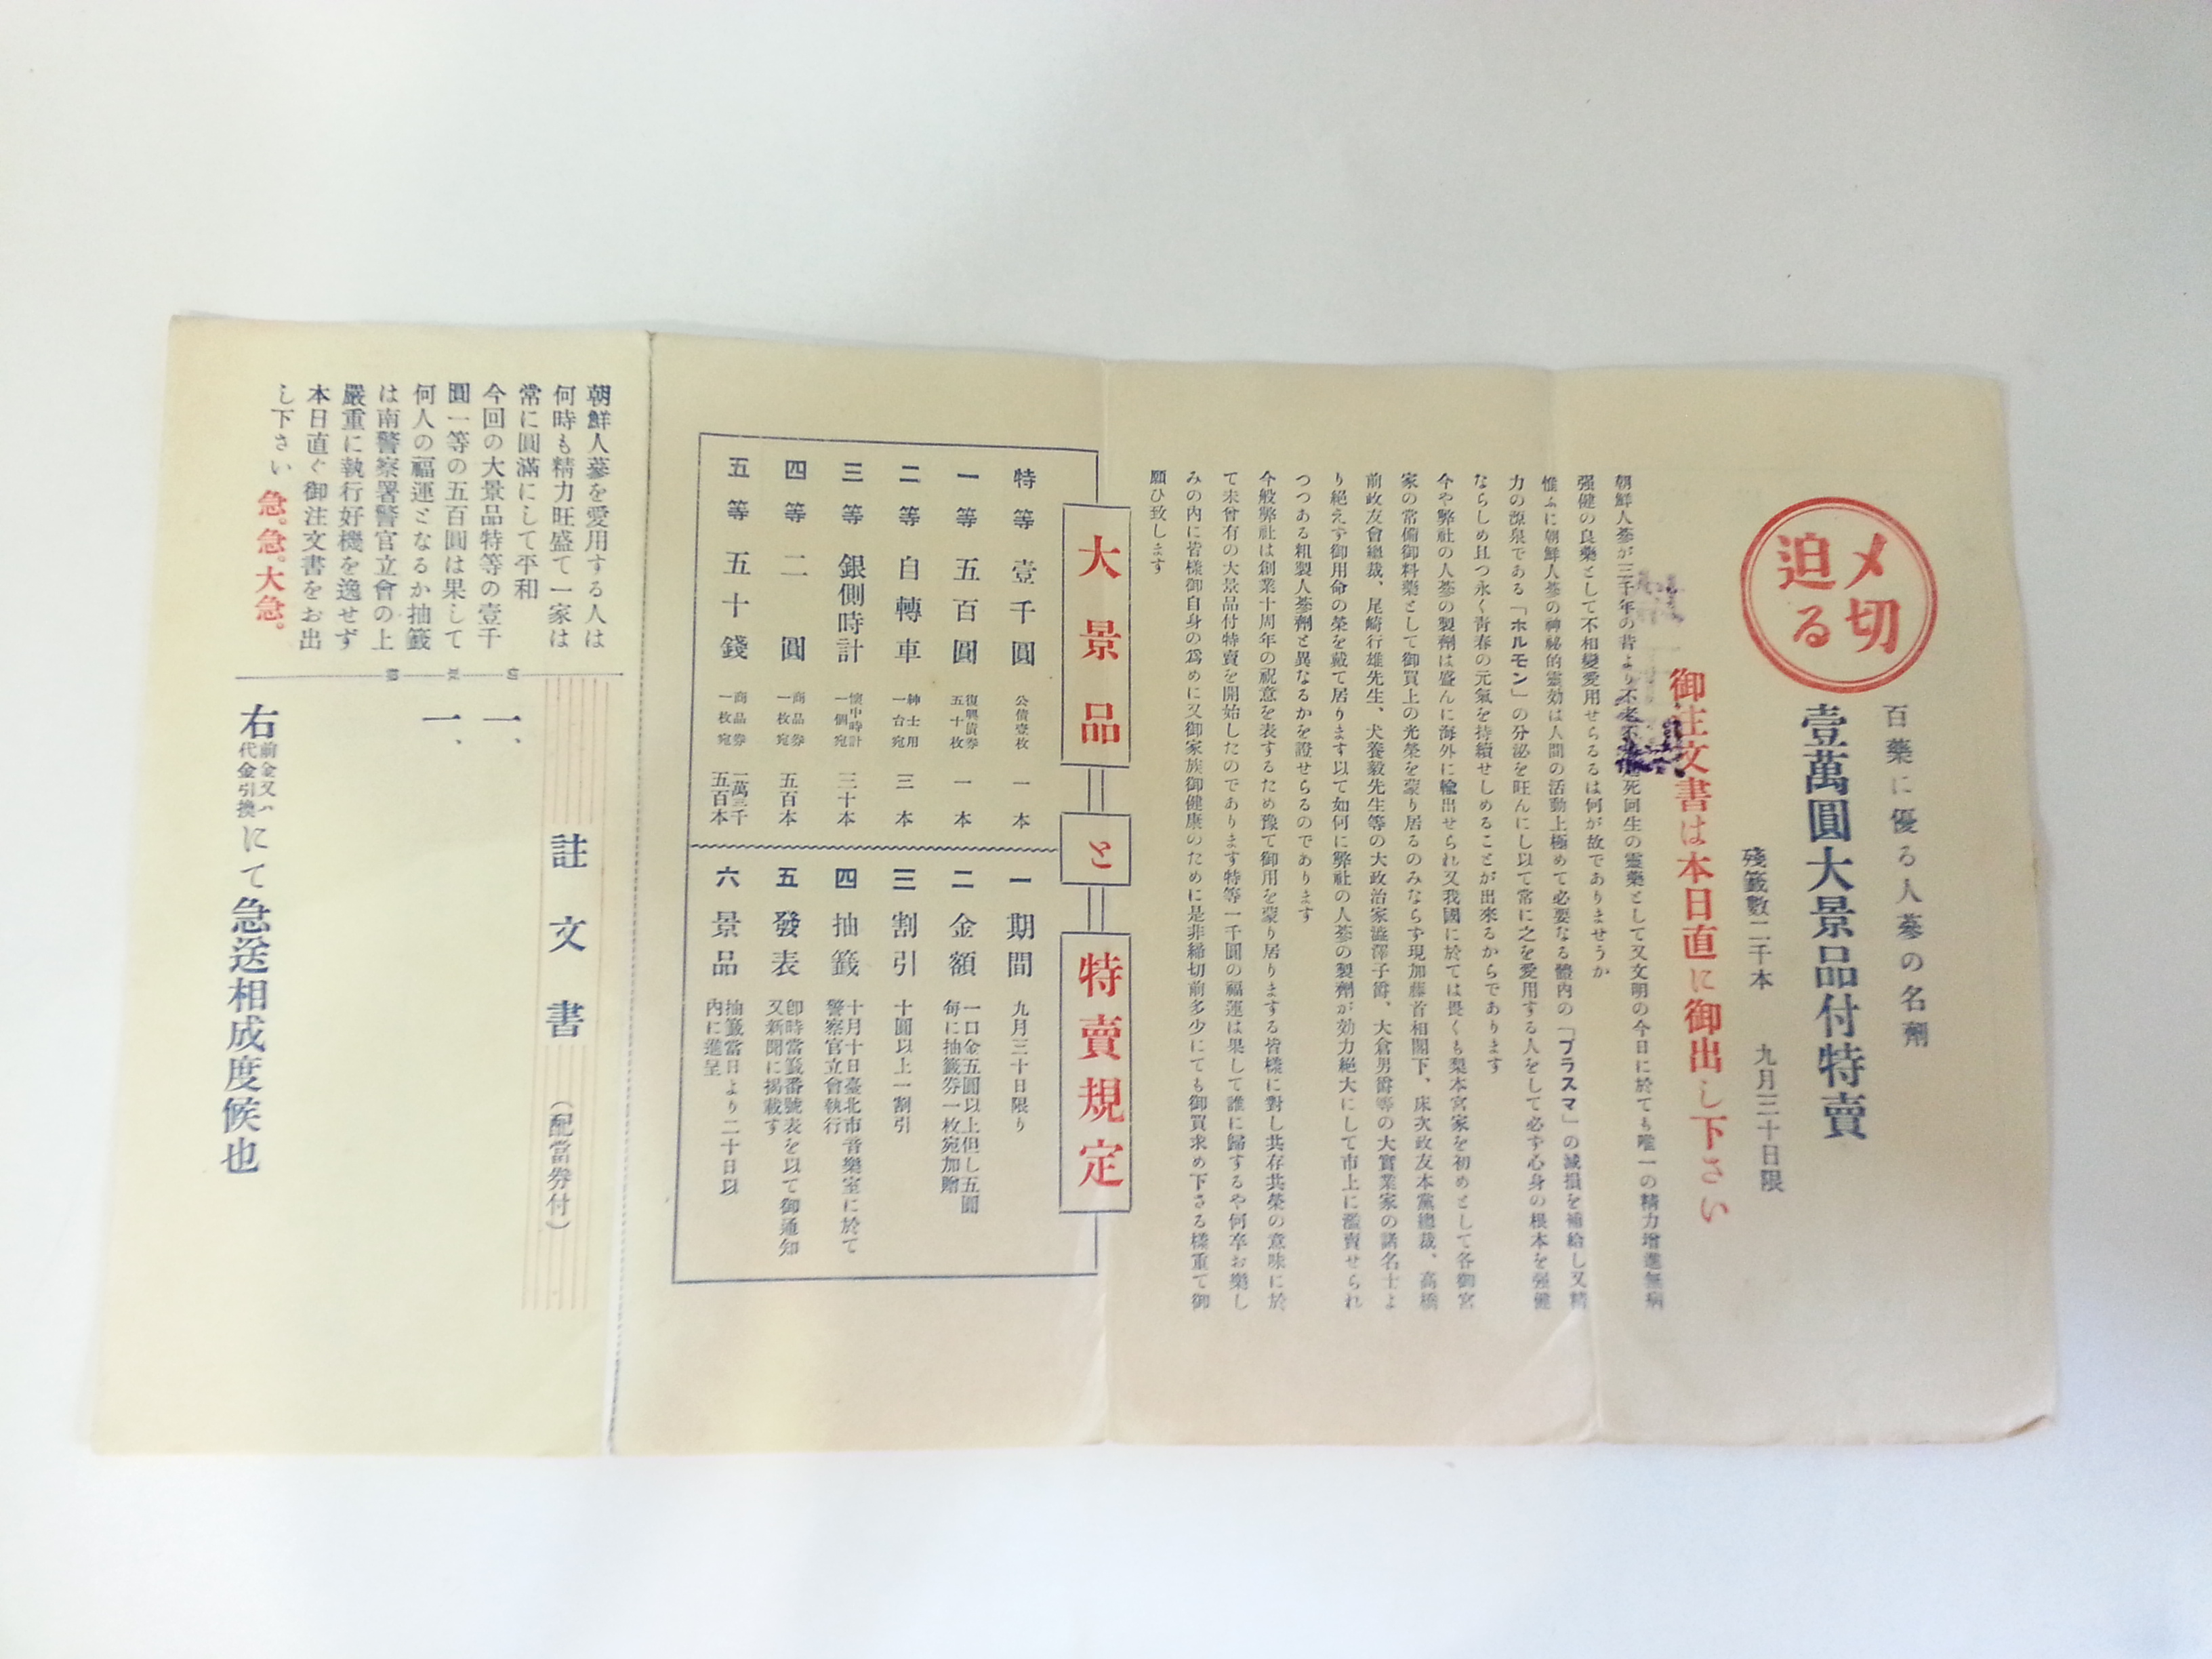 〆切
迫る
百藥に優る人蔘の名劑
壹萬圓大景品付特賣
殘籤數二千本　九月三十日限
御注文書は本日直に御出し下さい
朝鮮人蔘が三千年の昔より不老不 死回生の靈藥として又文明の今日に於ても唯一の精力增進無病
强健の良藥として不相變愛用せらるるは何が故でありませうか
惟ふに朝鮮人蔘の神祕的靈効は人間の活動上極めて必要なる體内の「プラスマ」の減損を補給し又精
力の源泉である「ホルモン」の分泌を旺んにし以て常に之を愛用する人をして必ず心身の根本を强健
ならしめ且つ永く青春の元氣を持續せしめることが出來るからであります
今や弊社の人蔘の製劑は盛んに海外に輸出せられ又我國に於ては畏くも梨本宮家を初めとして各御宮
家の常備御料藥として御買上の光榮を蒙り居るのみならず現加藤首相閣下、床次政友本黨總裁、高橋
前政友會總裁、尾崎行雄先生、犬養毅先生等の大政治家澁澤子爵、大倉男爵等の大實業家の諸名士よ
り絕えず御用命の榮を戴て居ります以て如何に弊社の人蔘の製劑が効力絕大にして市上に濫賣せられ
つつある粗製人蔘劑と異なるかを證せらるのであります
今般弊社は創業十周年の祝意を表するため豫て御用を蒙り居りまする皆樣に對し共存共榮の意味に於
て未曾有の大景品付特賣を開始したのであります特等一千圓の福運は果して誰に歸するや何卒お樂し
みの内に皆樣御自身の爲めに又御家族御健康のために是非締切前多少にても御買求め下さる樣重て御
願ひ致します
大景品と特賣規定
特等　壹千圓　公債壹枚　一本
一等　五百圓　復興債券五十枚　一本
二等　自轉車　紳士用一台宛　三本
三等　銀側時計　懷中時計一個宛　三十本
四等　二圓　商品券一枚宛　五百本
五等　五十錢　商品券一枚宛　一萬三千五百本
一　期間　九月三十日限り
二　金額　一口金五圓以上但し五圓每に抽籤券一枚宛加贈
三　割引　十圓以上一割引
四　抽籤　十月十日臺北市音樂室に於て警察官立會執行
五　發表　卽時當籤番號表を以て御通知又新聞に揭載す
六　景品　抽籤當日より二十日以内に進呈
朝鮮人蔘を愛用する人は
何時も精力旺盛て一家は
常に圓滿にして平和
今回の大景品特等の壹千
圓一等の五百圓は果して
何人の福運となるか抽籤
は南警察署警官立會の上
嚴重に執行好機を逸せず
本日直ぐ御注文書をお出
し下さい 急。急。大急。
註文書（配當券付）
一、
一、
右前金又ハ代金引換にて急送相成度候也